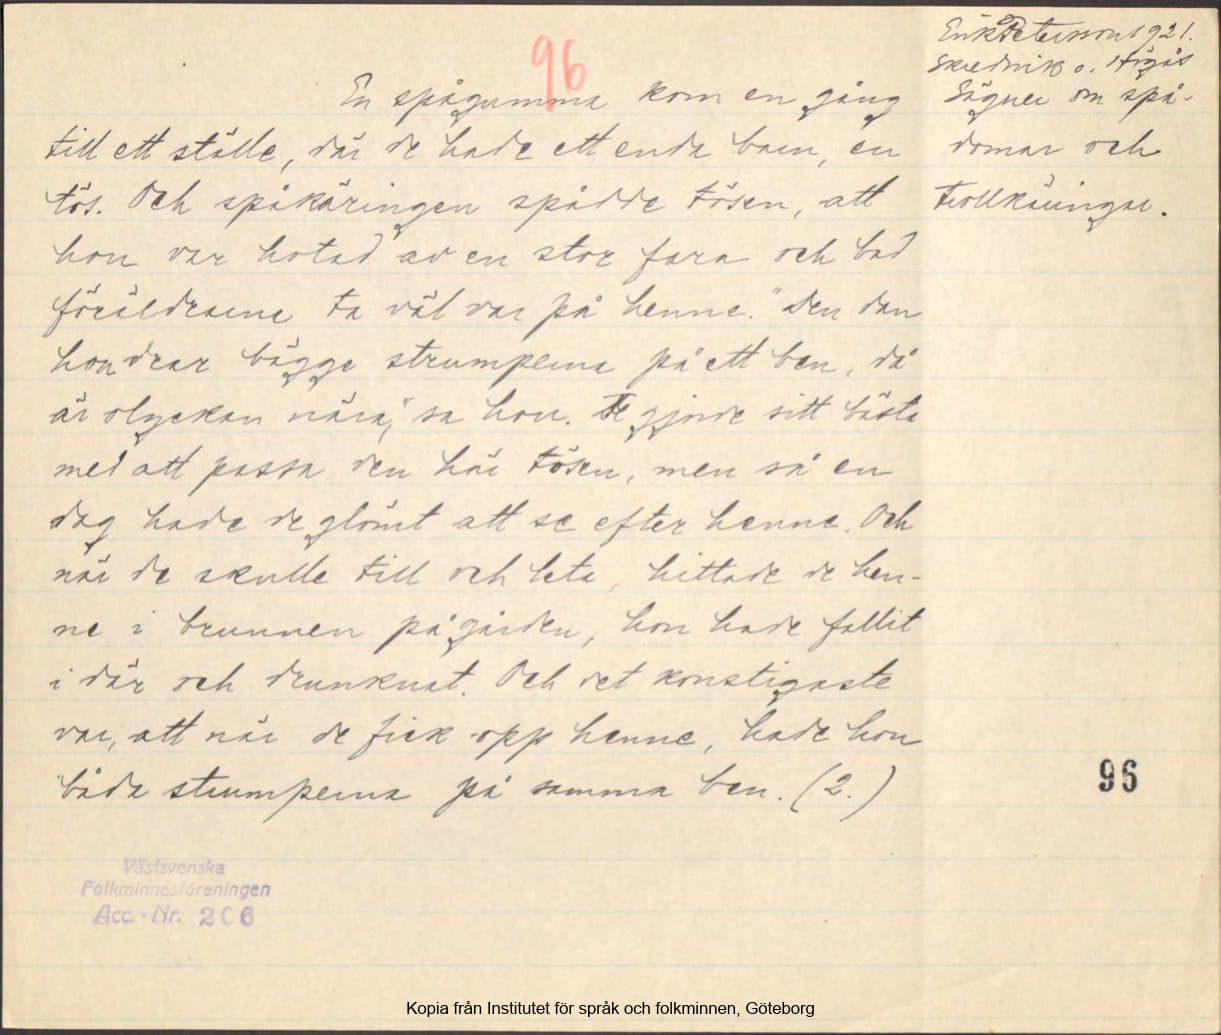 96
Erik Petersson 1921.
Skredvik o. Högås
Sägner om spå-
domar och
trollkäringar.
En spågumma kom en gång
till ett ställe, där de hade ett enda barn, en
tös. Och spåkäringen spådde tösen, att
hon var hotad av en stor fara och bad
föräldrarne ta väl var på henne. "Den dan
hon drar bägge strumperna på ett ben, då
är olyckan nära", sa hon. De gjorde sitt bästa
med att passa den här tösen, men så en
dag hade de glömt att se efter henne. Och
när de skulle till och leta, hittade de hen-
ne i brunnen på gården, hon hade fallit
i där och drunknat. Och det konstigaste
var, att när de fick opp henne, hade hon
båda strumperna på samma ben. (2.)
96
Västsvenska
Folkminnesföreningen
Acc. - Nr. 206
Kopia från Institutet för språk och folkminnen, Göteborg